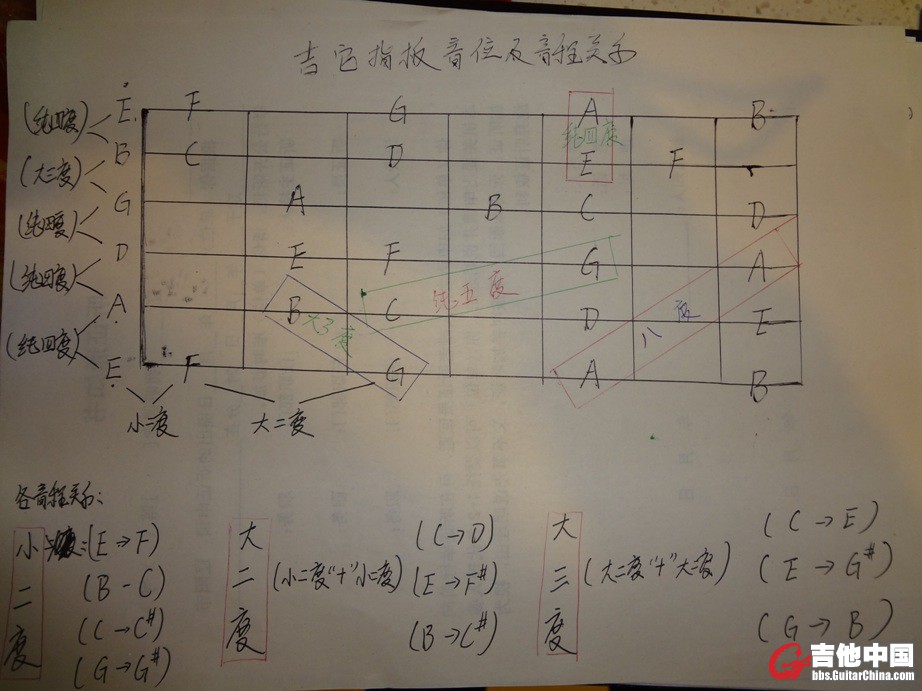 吉它指板音位及音程关系
E F G A B
(纯四度)
纯四度
B C D E F
(大三度)
G A B C D
(纯四度)
D E F G A
(纯四度)
纯五度
A B C D E
大3度
八度
(纯四度)
E F G A B
小二度 大二度
各音程关系:
小二度 :(E→F)
(B-C)
(C→C#)
(G→G#)
大二度 (小二度"+"小二度) (C→D)
(E→F#)
(B→C#)
大三度 (大二度"+"大二度) (C→E)
(E→G#)
(G→B)
吉他中国
bbs.GuitarChina.com